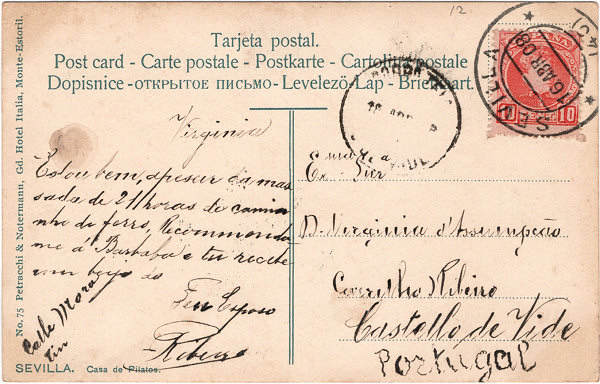 12
Tarjeta postal.
Post card - Carte postale - Postkarte - Cartolina postale
Dopisnice - ОТКРЫТОЕ ПИСЬМО - Levelező-Lap - Briefkaart.
SEVILLA
16 ABR 08
10 10
Virginia
Estou bem, apesar da mas
sada de 21 horas de cami
nho de ferro, Recommenda
me á Barbaba e tu recebe
um beijo do
Teu Esposo
Ribeiro
Calle Mora
tin
D. Virginia d'Assumpção
Ribeiro
Castello de Vide
Portugal
No. 75 Petracchi & Notermann, Gd. Hotel Italia, Monte-Estoril.
SEVILLA. Casa de Pilatos.